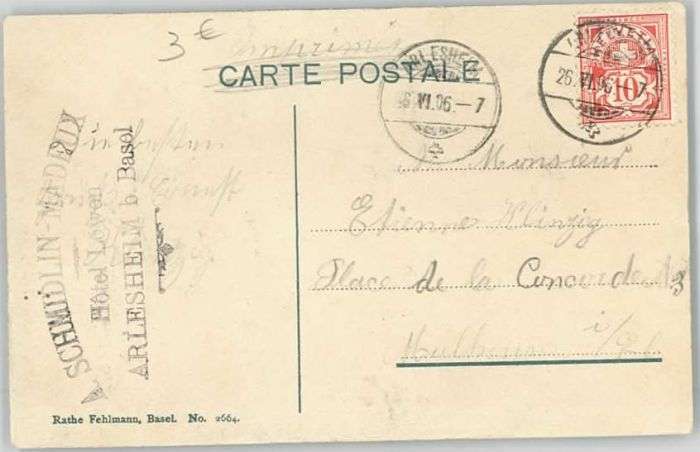 3 €
Imprimé
CARTE POSTALE
ARLESHEIM
26.VI.06.–7
HELVETIA
10
26.VI.06.–7
SCHMIDLIN-
Hôtel Löwen
ARLESHEIM b. Basel
Monsieur
Etienne Klinzig
Place de la Concorde
Mulhouse i/E.
Rathe Fehlmann, Basel. No. 2664.